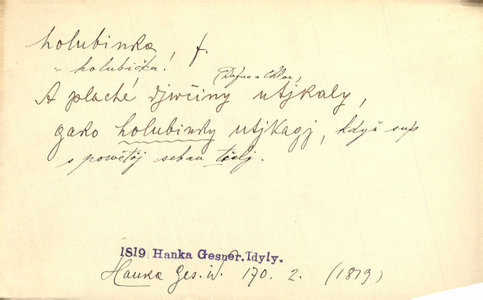 holubinka, f.
= holubička!
(Dafne a Chloe)
A plaché djwčiny utjkaly,
gako holubinky utjkagj, když sup
s powětřj seban
1819 Hanka Gesner. Idyly.
Hanka Ges. id. 170. 2. (1819)